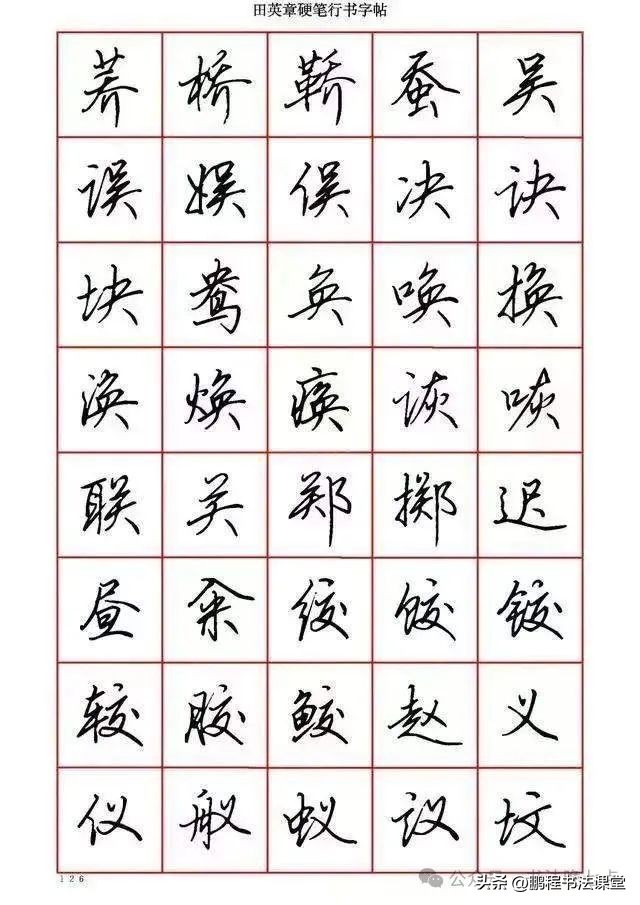 田英章硬笔行书字帖
荞 桥 鞒 蚕 吴
误 娱 俣 决 诀
块 鸯 奂 唤 换
涣 焕 痪 诙 咴
联 关 郑 掷 迟
昼 绞 饺 铰
较 胶 鲛 赵 义
仪 舣 蚁 议 坟
126
头条 @鹏程书法课堂